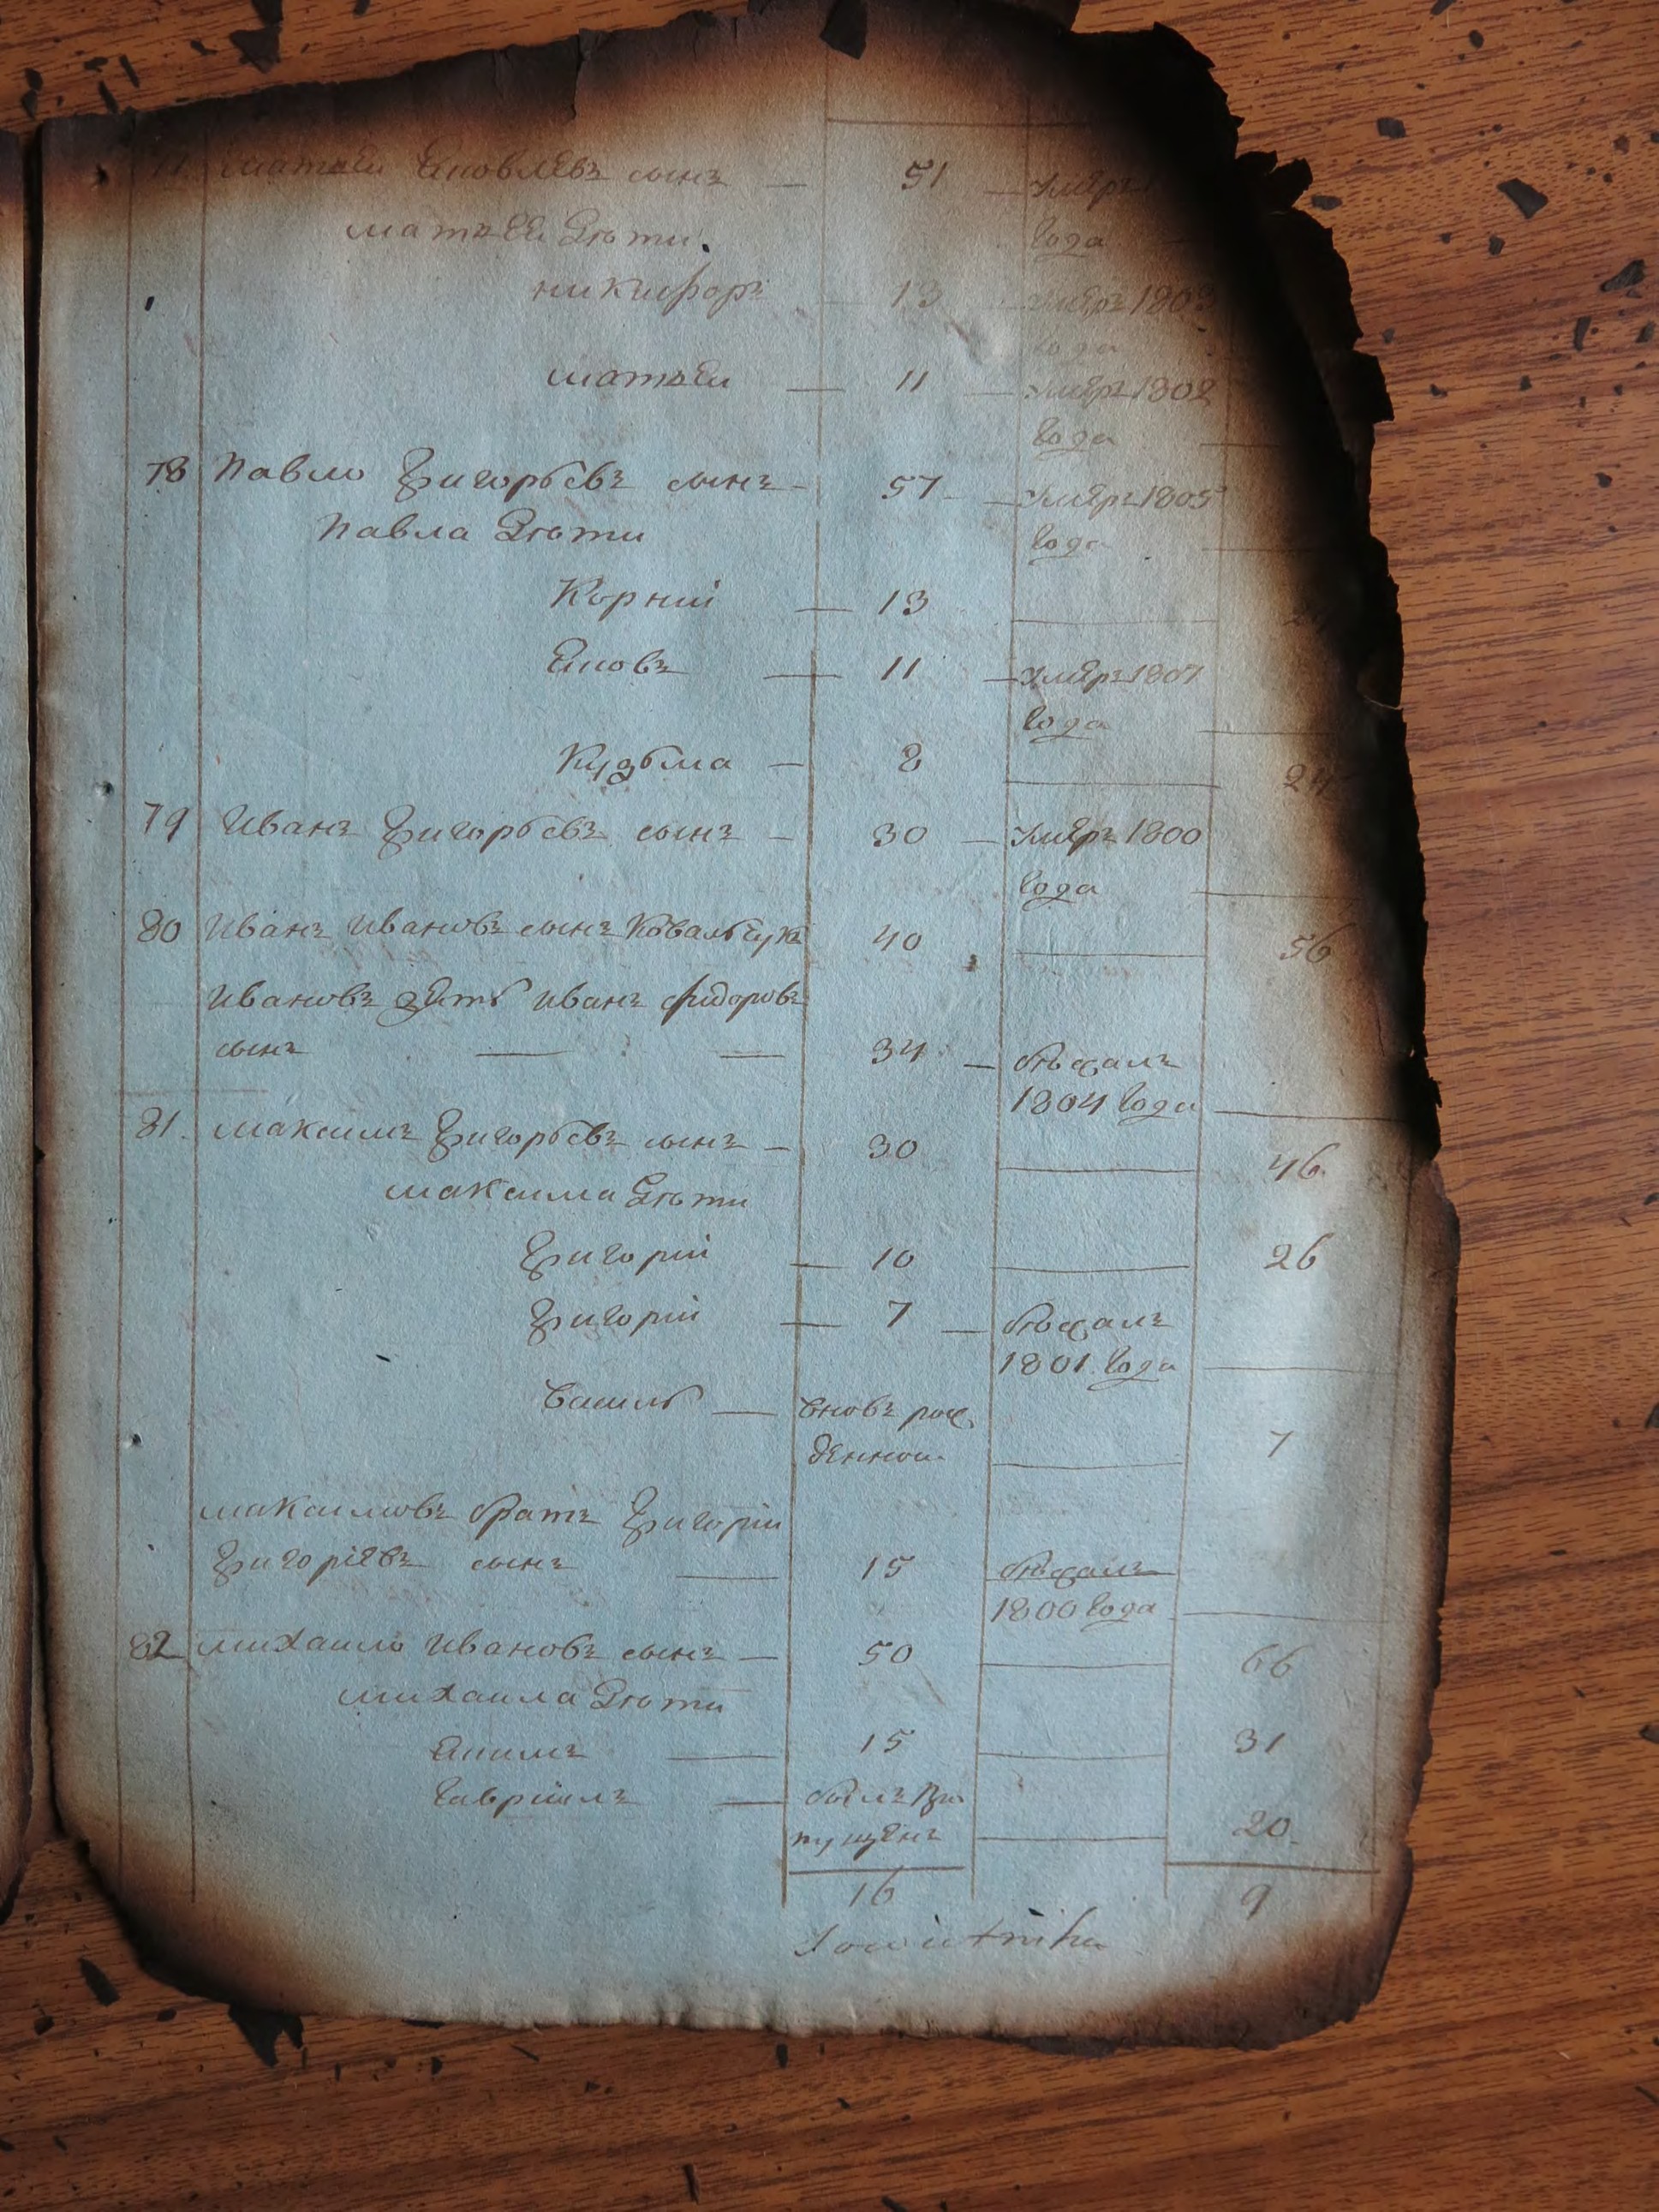 77 Матвей Яковлевъ сынъ — 51 — Умеръ 1
года
Матвея Дѣти
Никифоръ — 13 — Умеръ 1803
года
Матвей — 11 — Умеръ 1802
года
78 Павло Григорьевъ сынъ — 57 — Умеръ 1805
года
Павла Дѣти
Корний — 13 —
Яковъ — 11 — Умеръ 1807
года
Кузьма — 8 — 24
79 Иванъ Григорьевъ сынъ — 30 — Умеръ 1800
года
80 Иванъ Ивановъ сынъ Ковальчукъ 40 — 56
Ивановъ зять Иванъ Фидоровъ
сынъ — — 34 — бѣжалъ
1804 года
81. Максимъ Григорьевъ сынъ — 30 — 46
Максима Дѣти
Григорій — 10 — 26
Григорій — 7 — бѣжалъ
1801. года
Василь — вновъ рож
денной — 7
Максимовъ братъ Григорій
Григоріевъ сынъ — 15 бѣжалъ
1800 года —
82 Михайло Ивановъ сынъ — 50 — 66
Михайла Дѣти
Якимъ — 15 — 31
Гавріилъ — былъ про
пущенъ — 20
16 9